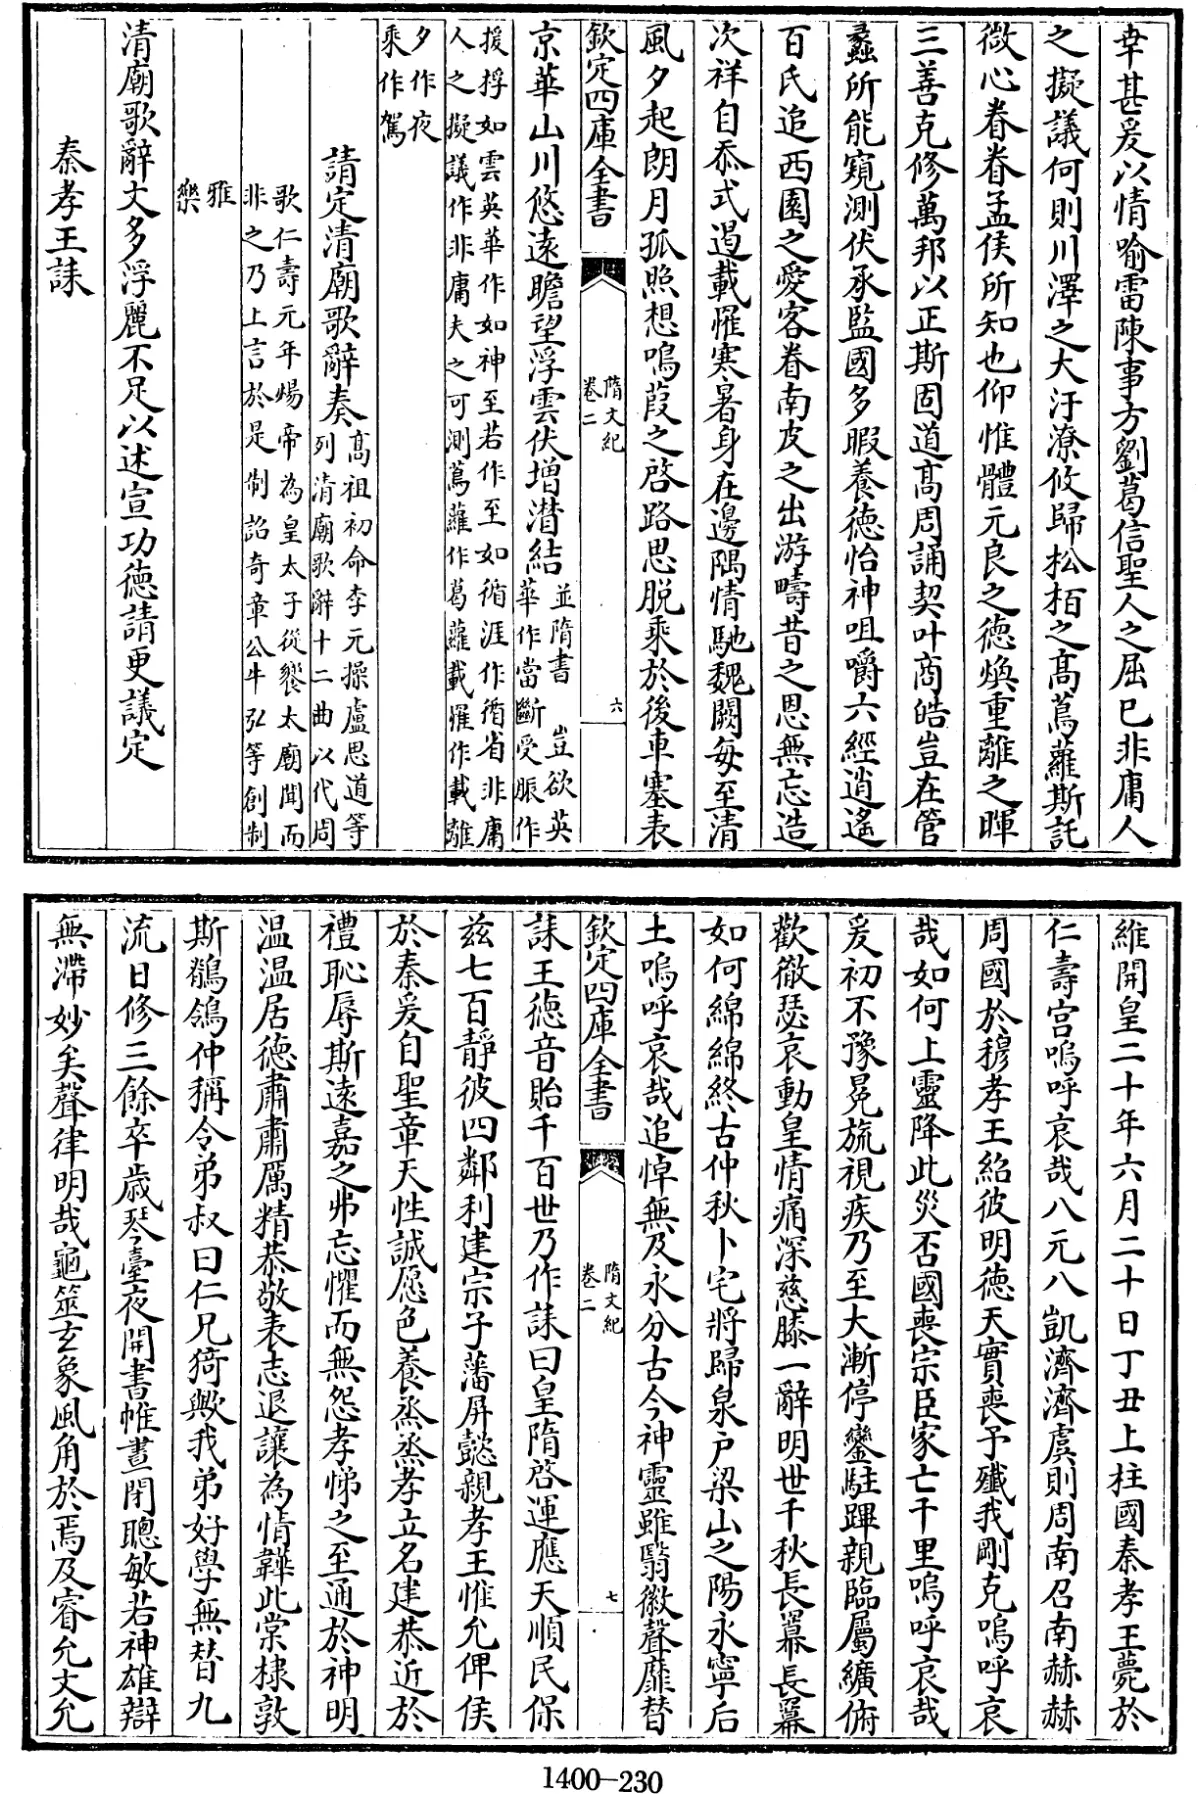 幸甚爰以情喻雷陳事方劉葛信聖人之屈已非庸人
之擬議何則川澤之大汙潦攸歸松栢之髙蔦蘿斯託
微心眷眷孟侯所知也仰惟體元良之徳煥重離之暉
三善克修萬邦以正斯固道髙周誦契叶商皓豈在管
蠡所能窺測伏承監國多暇養徳怡神咀嚼六經逍遙
百氏追西園之愛客眷南皮之出游疇昔之恩無忘造
次祥自忝式遏載罹寒暑身在邊隅情馳魏闕每至清
風夕起朗月孤照想鳴葭之啓路思脱乘於後車塞表
欽定四庫全書
隋文紀
卷二
六
京華山川悠遠瞻望浮雲伏增潛結
並隋書 豈欲英
華作當斷受脤作
援捊如雲英華作如神至若作至如循涯作循省非庸
人之擬議作非庸夫之可測蔦蘿作葛蘿載罹作載離
夕作夜
乘作駕
請定清廟歌辭奏
髙祖初命李元操盧思道等
列清廟歌辭十二曲以代周
歌仁壽元年煬帝為皇太子從饗太廟聞而
非之乃上言於是制詔奇章公牛弘等創制
雅
樂
清廟歌辭文多浮麗不足以述宣功徳請更議定
秦孝王誄
維開皇二十年六月二十日丁丑上柱國秦孝王薨於
仁壽宮嗚呼哀哉八元八凱濟濟虞則周南召南赫赫
周國於穆孝王紹彼明徳天實喪予殲我剛克嗚呼哀
哉如何上靈降此災否國喪宗臣家亡千里嗚呼哀哉
爰初不豫冕旒視疾乃至大漸停鑾駐蹕親臨屬纊俯
歡徹瑟哀動皇情痛深慈膝一辭明世千秋長冪長冪
如何綿綿終古仲秋卜宅將歸泉户梁山之陽永寧后
土嗚呼哀哉追悼無及永分古今神靈雖翳徽聲靡替
欽定四庫全書
隋文紀
卷二
七
誄王徳音貽千百世乃作誄曰皇隋啓運應天順民保
兹七百靜彼四鄰利建宗子藩屏懿親孝王惟允俾侯
於秦爰自聖章天性誠愿色養烝烝孝立名建恭近於
禮恥辱斯遠嘉之弗忘懼而無怨孝悌之至通於神明
温温居徳肅肅厲精恭敬表志退讓為情韡此棠棣敦
斯鶺鴒仲稱令弟叔曰仁兄猗歟我弟好學無替九
流日修三餘卒歳琴臺夜開書帷晝閉聰敏若神雄辯
無滯妙矣聲律明哉龜筮玄象風角於焉及睿允文允
1400-230